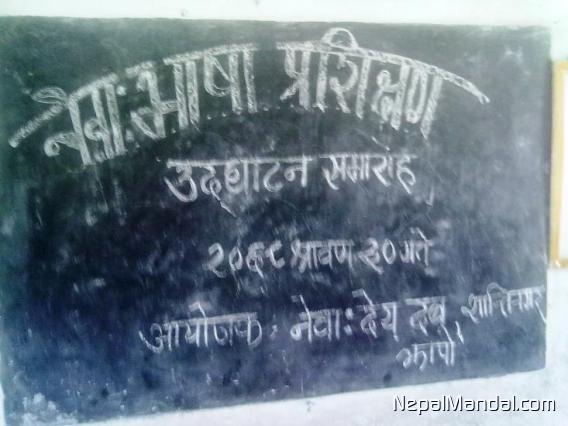 नेवाः भाषा प्रशिक्षण
उद्घाटन समारोह
२०६८ श्रावण ३० गते
आयोजक : नेवाः देय् दबू, शान्तिनगर
झापा
NepalMandal.com